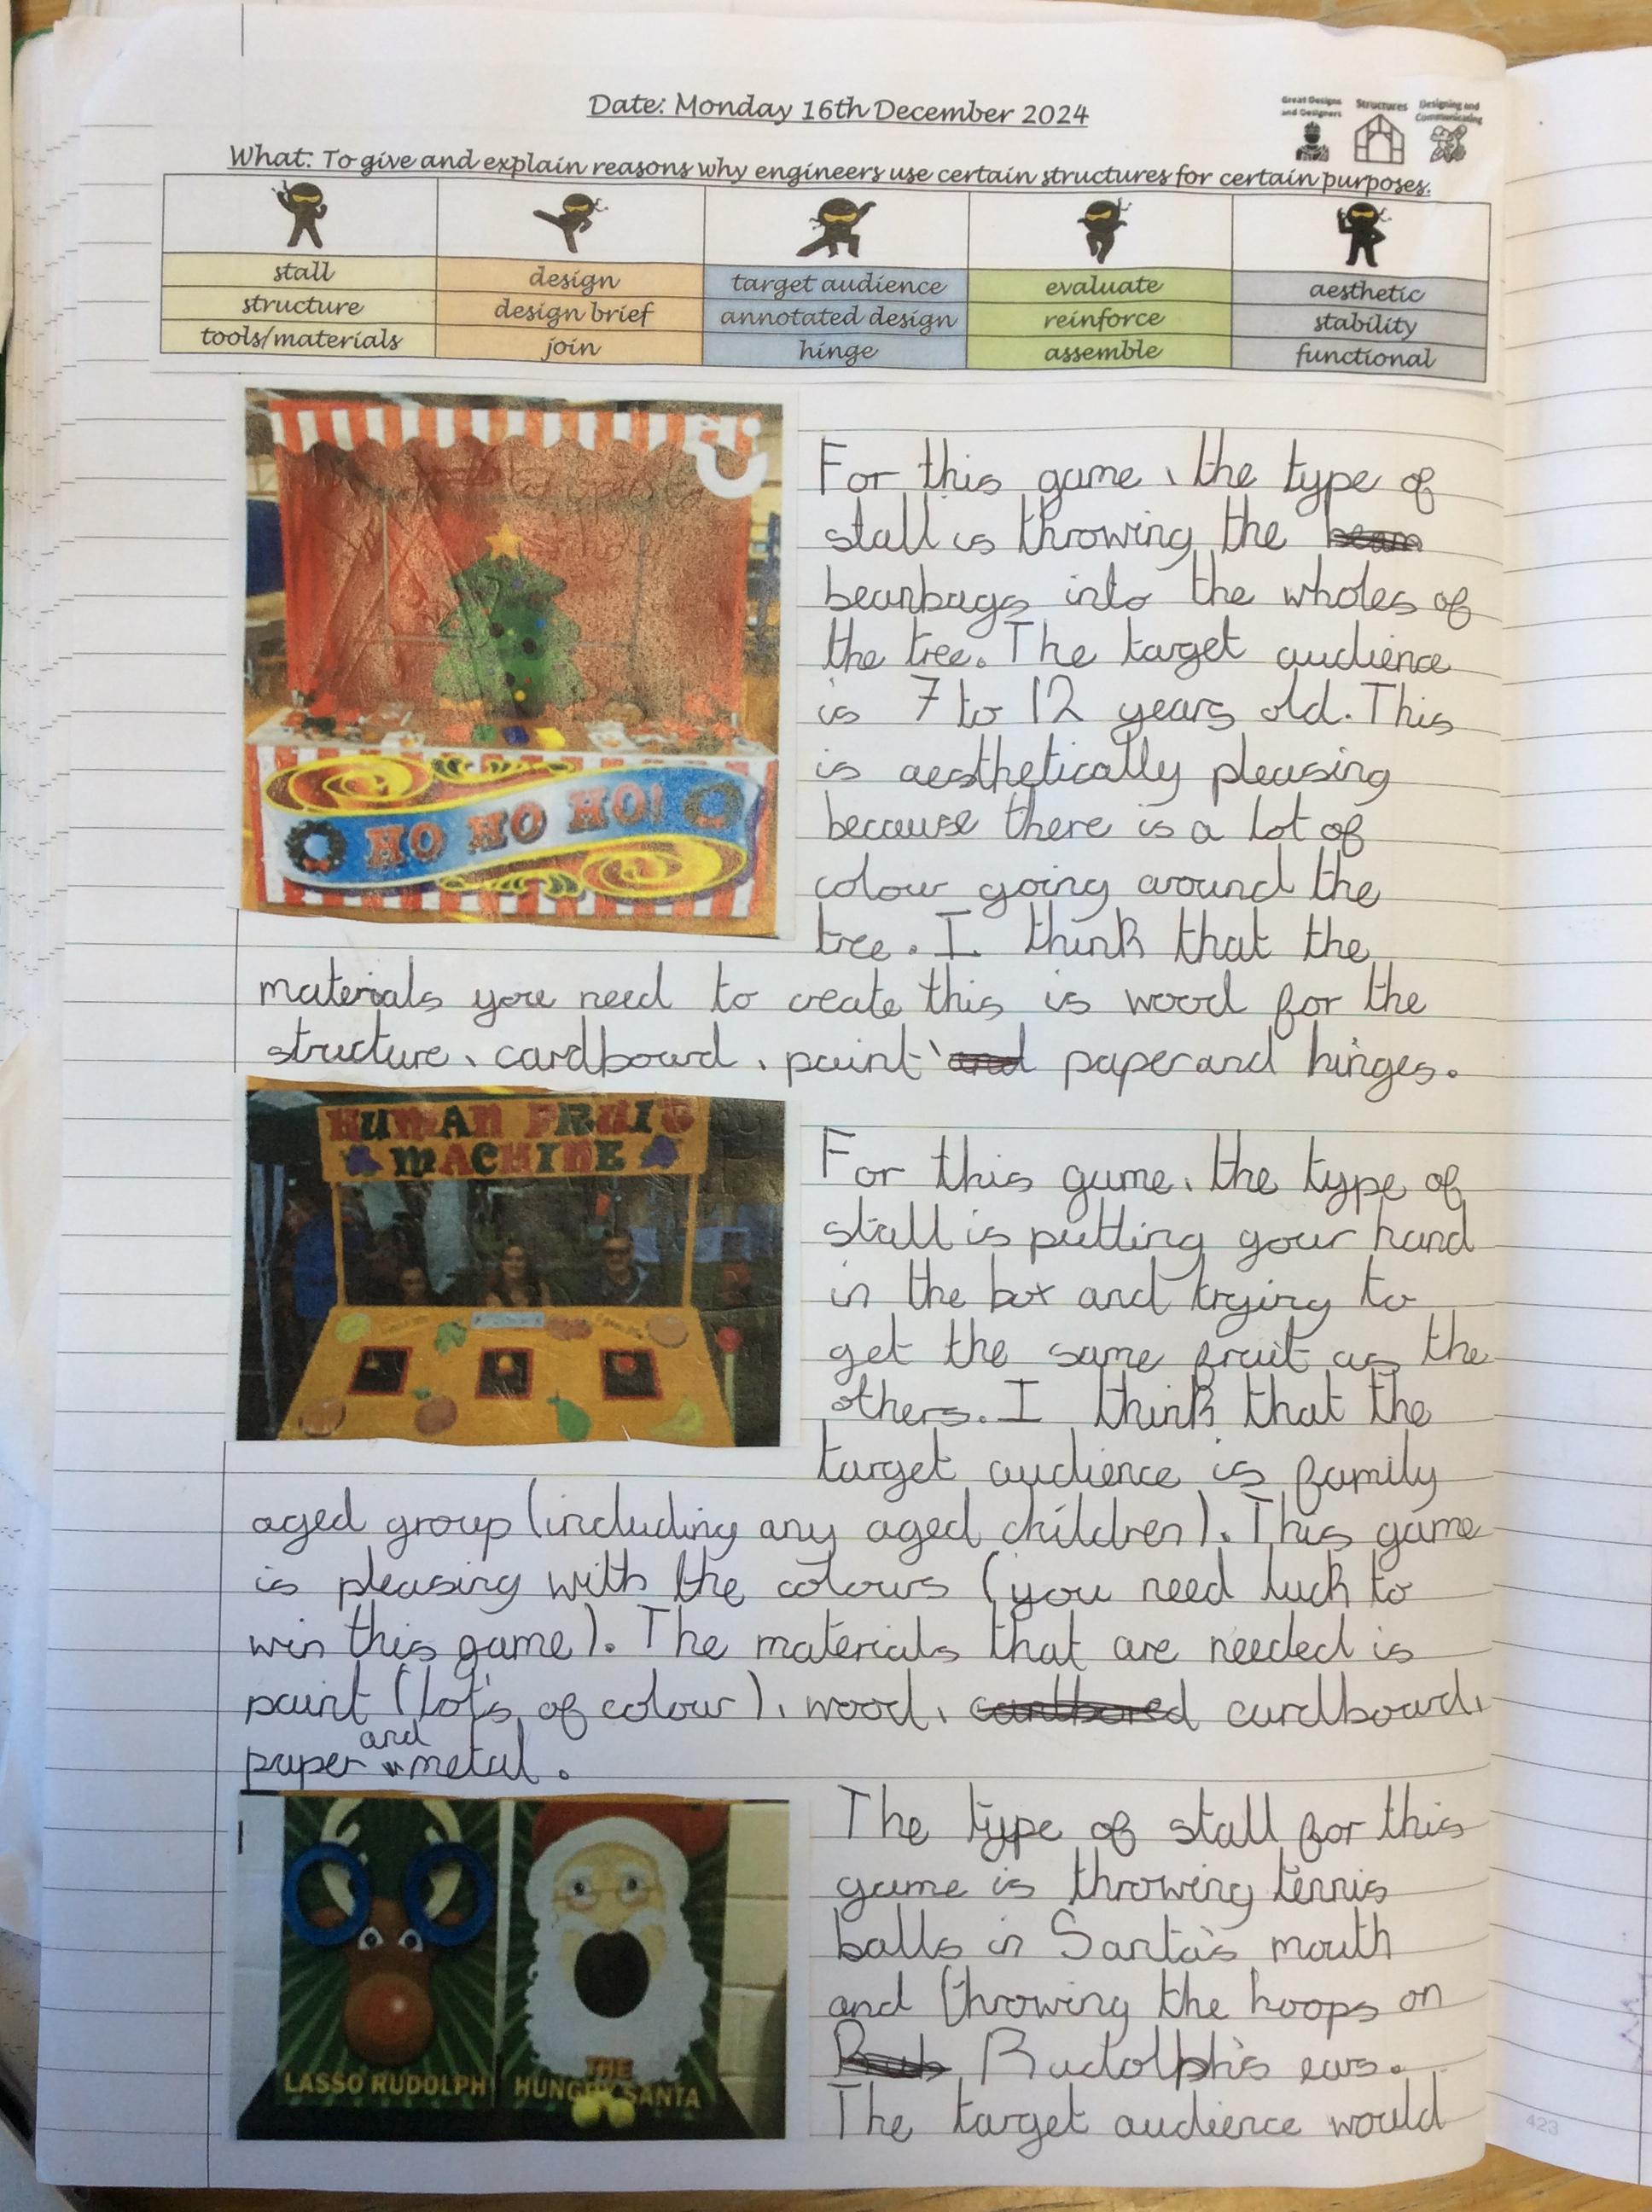 Date: Monday 16th December 2024
Great Designs and Designers
Structures
Designing and Communicating
What: To give and explain reasons why engineers use certain structures for certain purposes.
stall design target audience evaluate aesthetic
structure design brief annotated design reinforce stability
tools/materials join hinge assemble functional
HO HO HO!
For this game, the type of
stall is throwing the beam
beanbags into the wholes of
the tree. The target audience
is 7 to 12 years old. This
is aesthetically pleasing
because there is a lot of
colour going around the
tree. I think that the
materials you need to create this is wood for the
structure, cardboard, paint, and paper and hinges.
HUMAN FRUIT
MACHINE
For this game, the type of
stall is putting your hand
in the box and trying to
get the same fruit as the
others. I think that the
target audience is family
aged group (including any aged children). This game
is pleasing with the colours (you need luck to
win this game). The materials that are needed is
paint (lot's of colour), wood, cardbored cardboard,
paper and metal.
LASSO RUDOLPH
THE
HUNGRY SANTA
The type of stall for this
game is throwing tennis
balls in Santa's mouth
and throwing the hoops on
Rub Rudolph's ears.
The target audience would
423